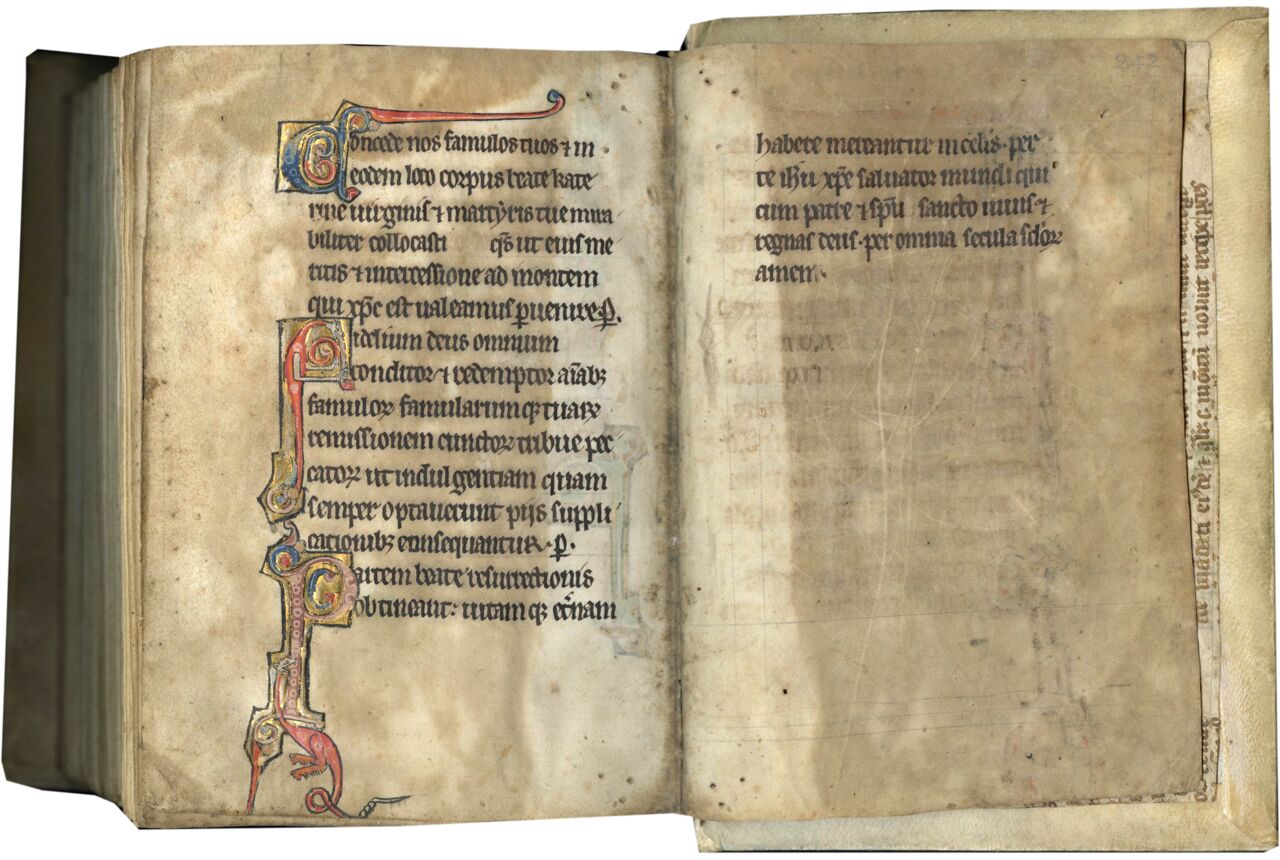 Concede nos famulos tuos ⁊ in
eodem loco corpus beate kate
rine uirginis ⁊ martyris tue mira
biliter collocasti qs̄ ut eius me
ritis ⁊ intercessione ad montem
qui xp̄c est ualeamus ꝑuenire. P̱.
Fidelium deus omnium
conditor ⁊ redemptor aīabꝫ
famuloꝝ famularumqꝫ tuaꝝ
remissionem cunctoꝝ tribue pec
catoꝝ ut indulgentiam quam
semper optauerunt pijs suppli
cationibꝫ consequantur. P̱.
Partem beate resurrectionis
obtineant: uitamqꝫ et̄nam
habere mereantur in celis. per
te ihū xp̄e saluator mundi qui
cum patre ⁊ sp̄u sancto uiuis ⁊
regnas deus. per omnia secula sc̄loꝝ
amen.
242